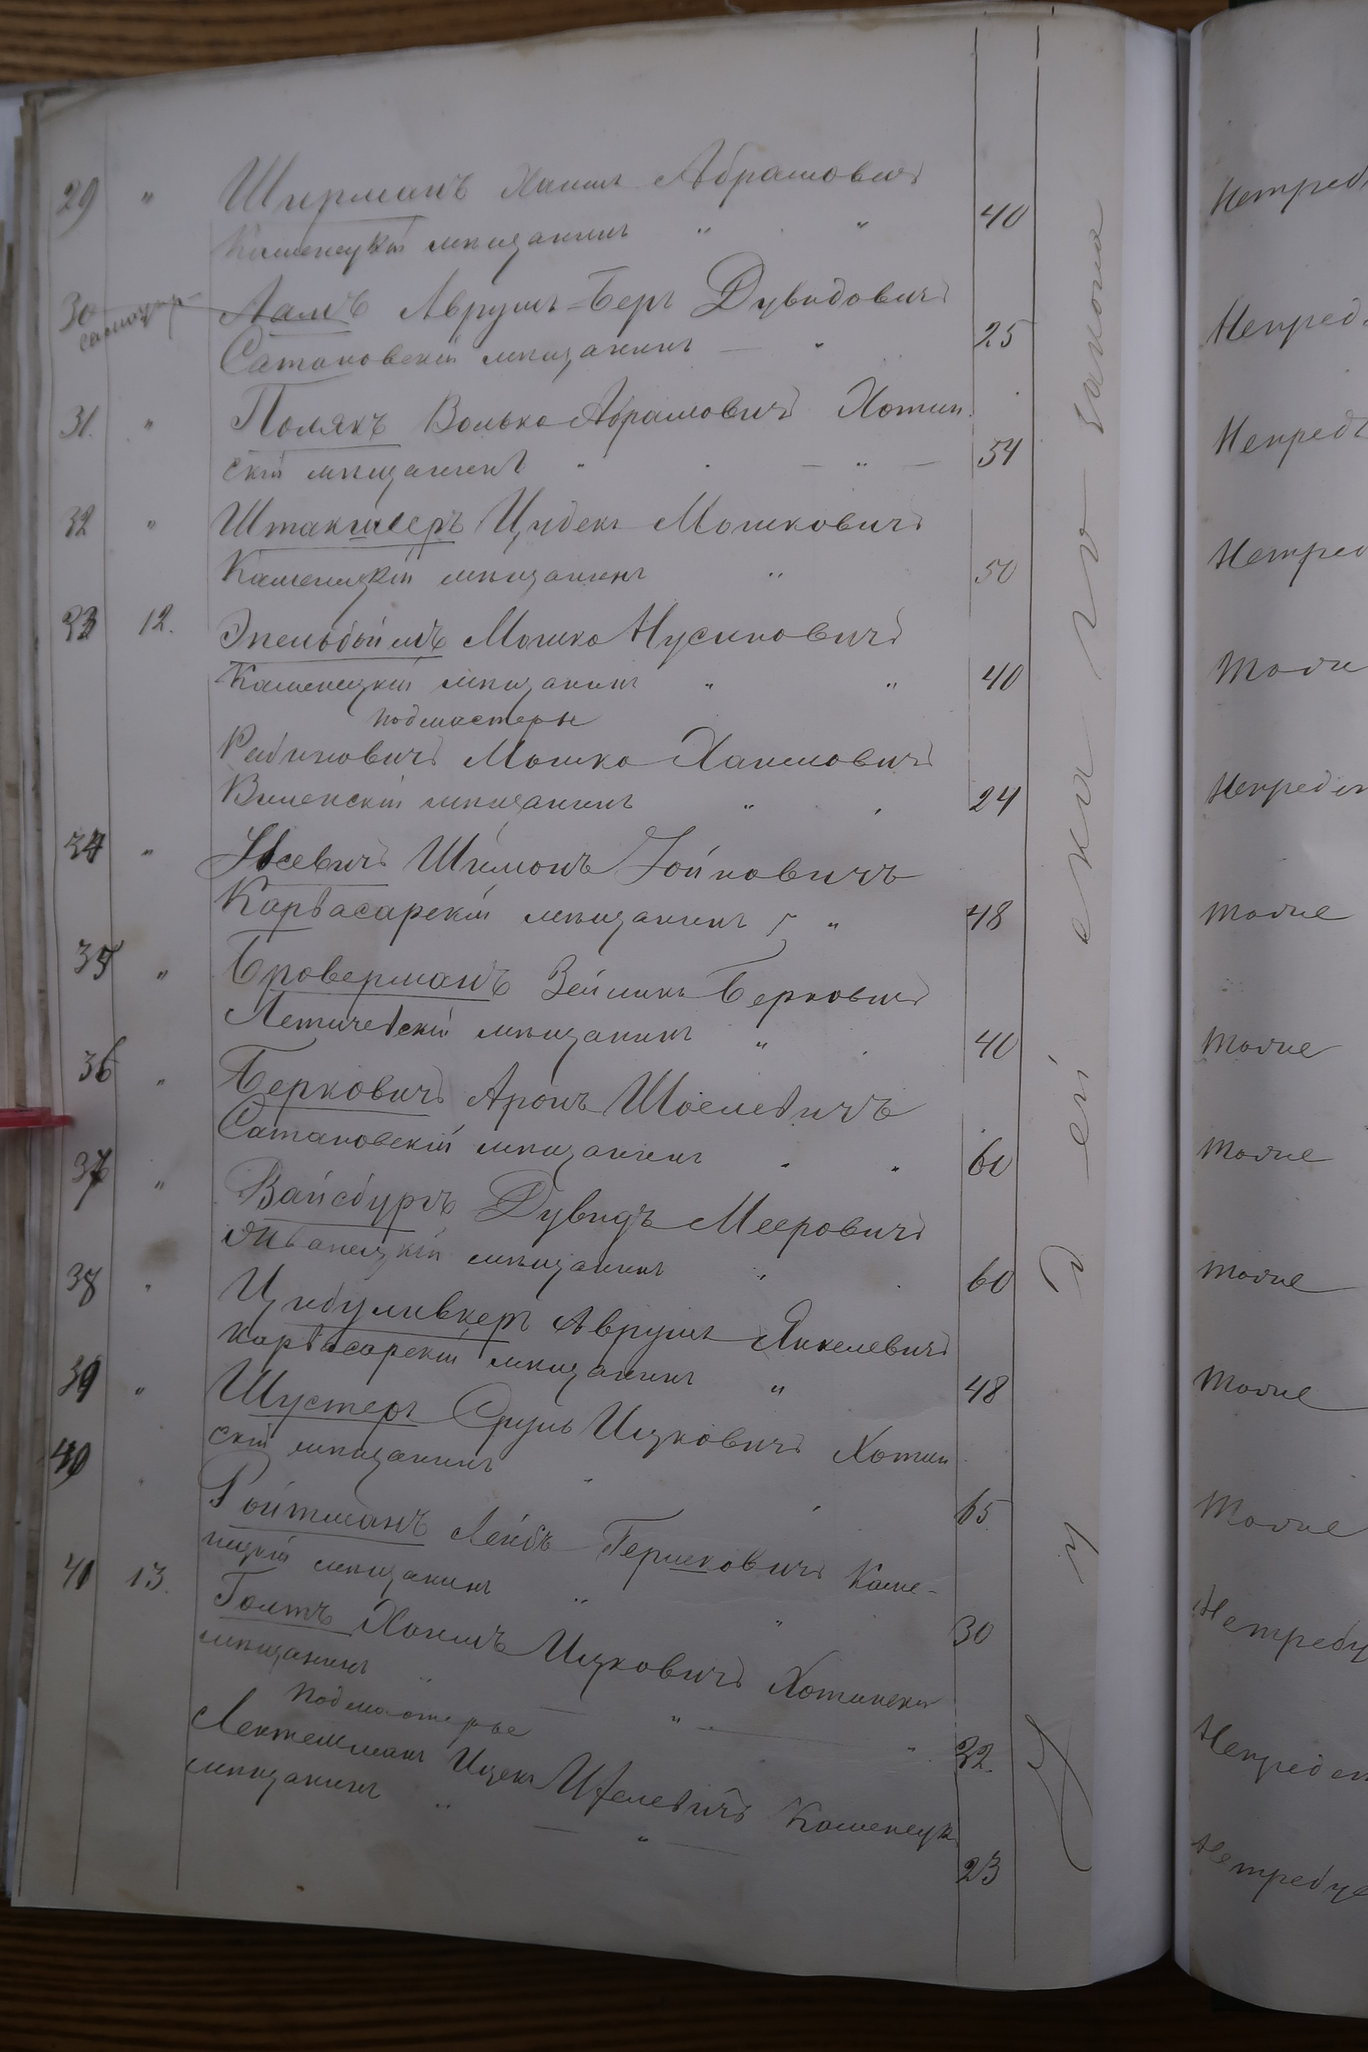 29 " Ширманъ Хаимъ Абрамовичъ
Каменецкій мѣщанинъ " " 40
30 Ламъ Аврумъ-Беръ Дувидовичъ
Сатановскій мѣщанинъ — " 25
31. " Полякъ Волько Абрамовичъ Хотин
скій мѣщанинъ " — " — 54
32 " Штакшлеръ Цудекъ Мошковичъ
Каменецкій мѣщанинъ " 50
33 12. Эпельбоймъ Мошко Нусиновичъ
Каменецкій мѣщанинъ " " 40
подмастерье
Рабиновичъ Мошко Хаимовичъ
Виленскій мѣщанинъ " 24
34 " Шимонъ Зойновичъ
Карвасарскій мѣщанинъ " 48
35 " Броверманъ Зейликъ Берковичъ
Летичевскій мѣщанинъ " 40
36 " Берковичъ Аронъ Шоелевичъ
Сатановскій мѣщанинъ " " 60
37 " Вайсбургъ Дувидъ Мееровичъ
Жванецкій мѣщанинъ " 60
38 " Цибуливкеръ Аврумъ Янкелевичъ
Карвасарскій мѣщанинъ " 48
39 " Шустеръ Сруль Ицковичъ Хотин
скій мѣщанинъ " 65
40 " Ройтманъ Лейбъ Гершковичъ Каме-
нецкій мѣщанинъ " " 30
41 13. Хаимъ Ицковичъ Хотинскій
мѣщанинъ " — " — " 32.
Подмастерье
Ицекъ Каменецк
мѣщанинъ " — " — 23
иудейскаго закона
Непред
Непред
Тоже
Тоже
Тоже
Тоже
Тоже
Тоже
Тоже